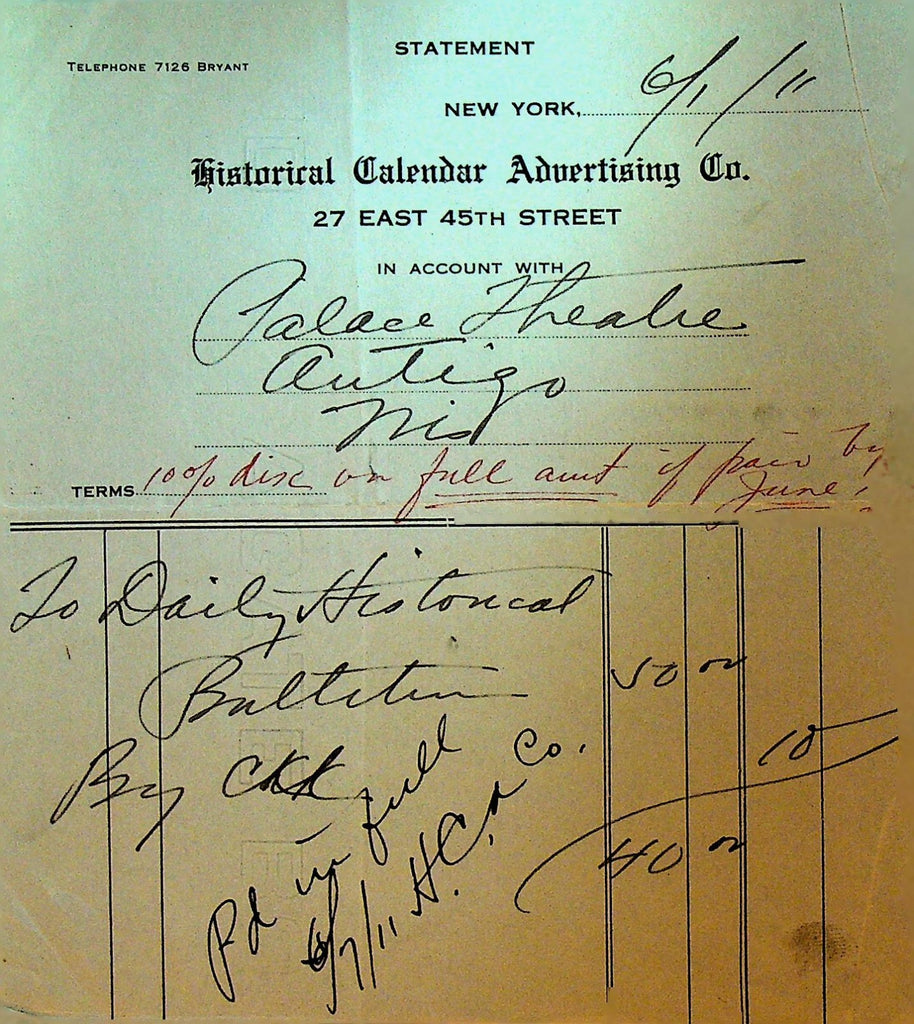 STATEMENT
TELEPHONE 7126 BRYANT
NEW YORK, 6/1/11
Historical Calendar Advertising Co.
27 EAST 45TH STREET
IN ACCOUNT WITH
Palace Theatre
Antigo
Wis
TERMS 10% disc on full amt if paid by
June.
To Daily Historical
Bulletin 50 00
By Ck 10
40 00
Pd in full
6/7/11 H.C.A Co.